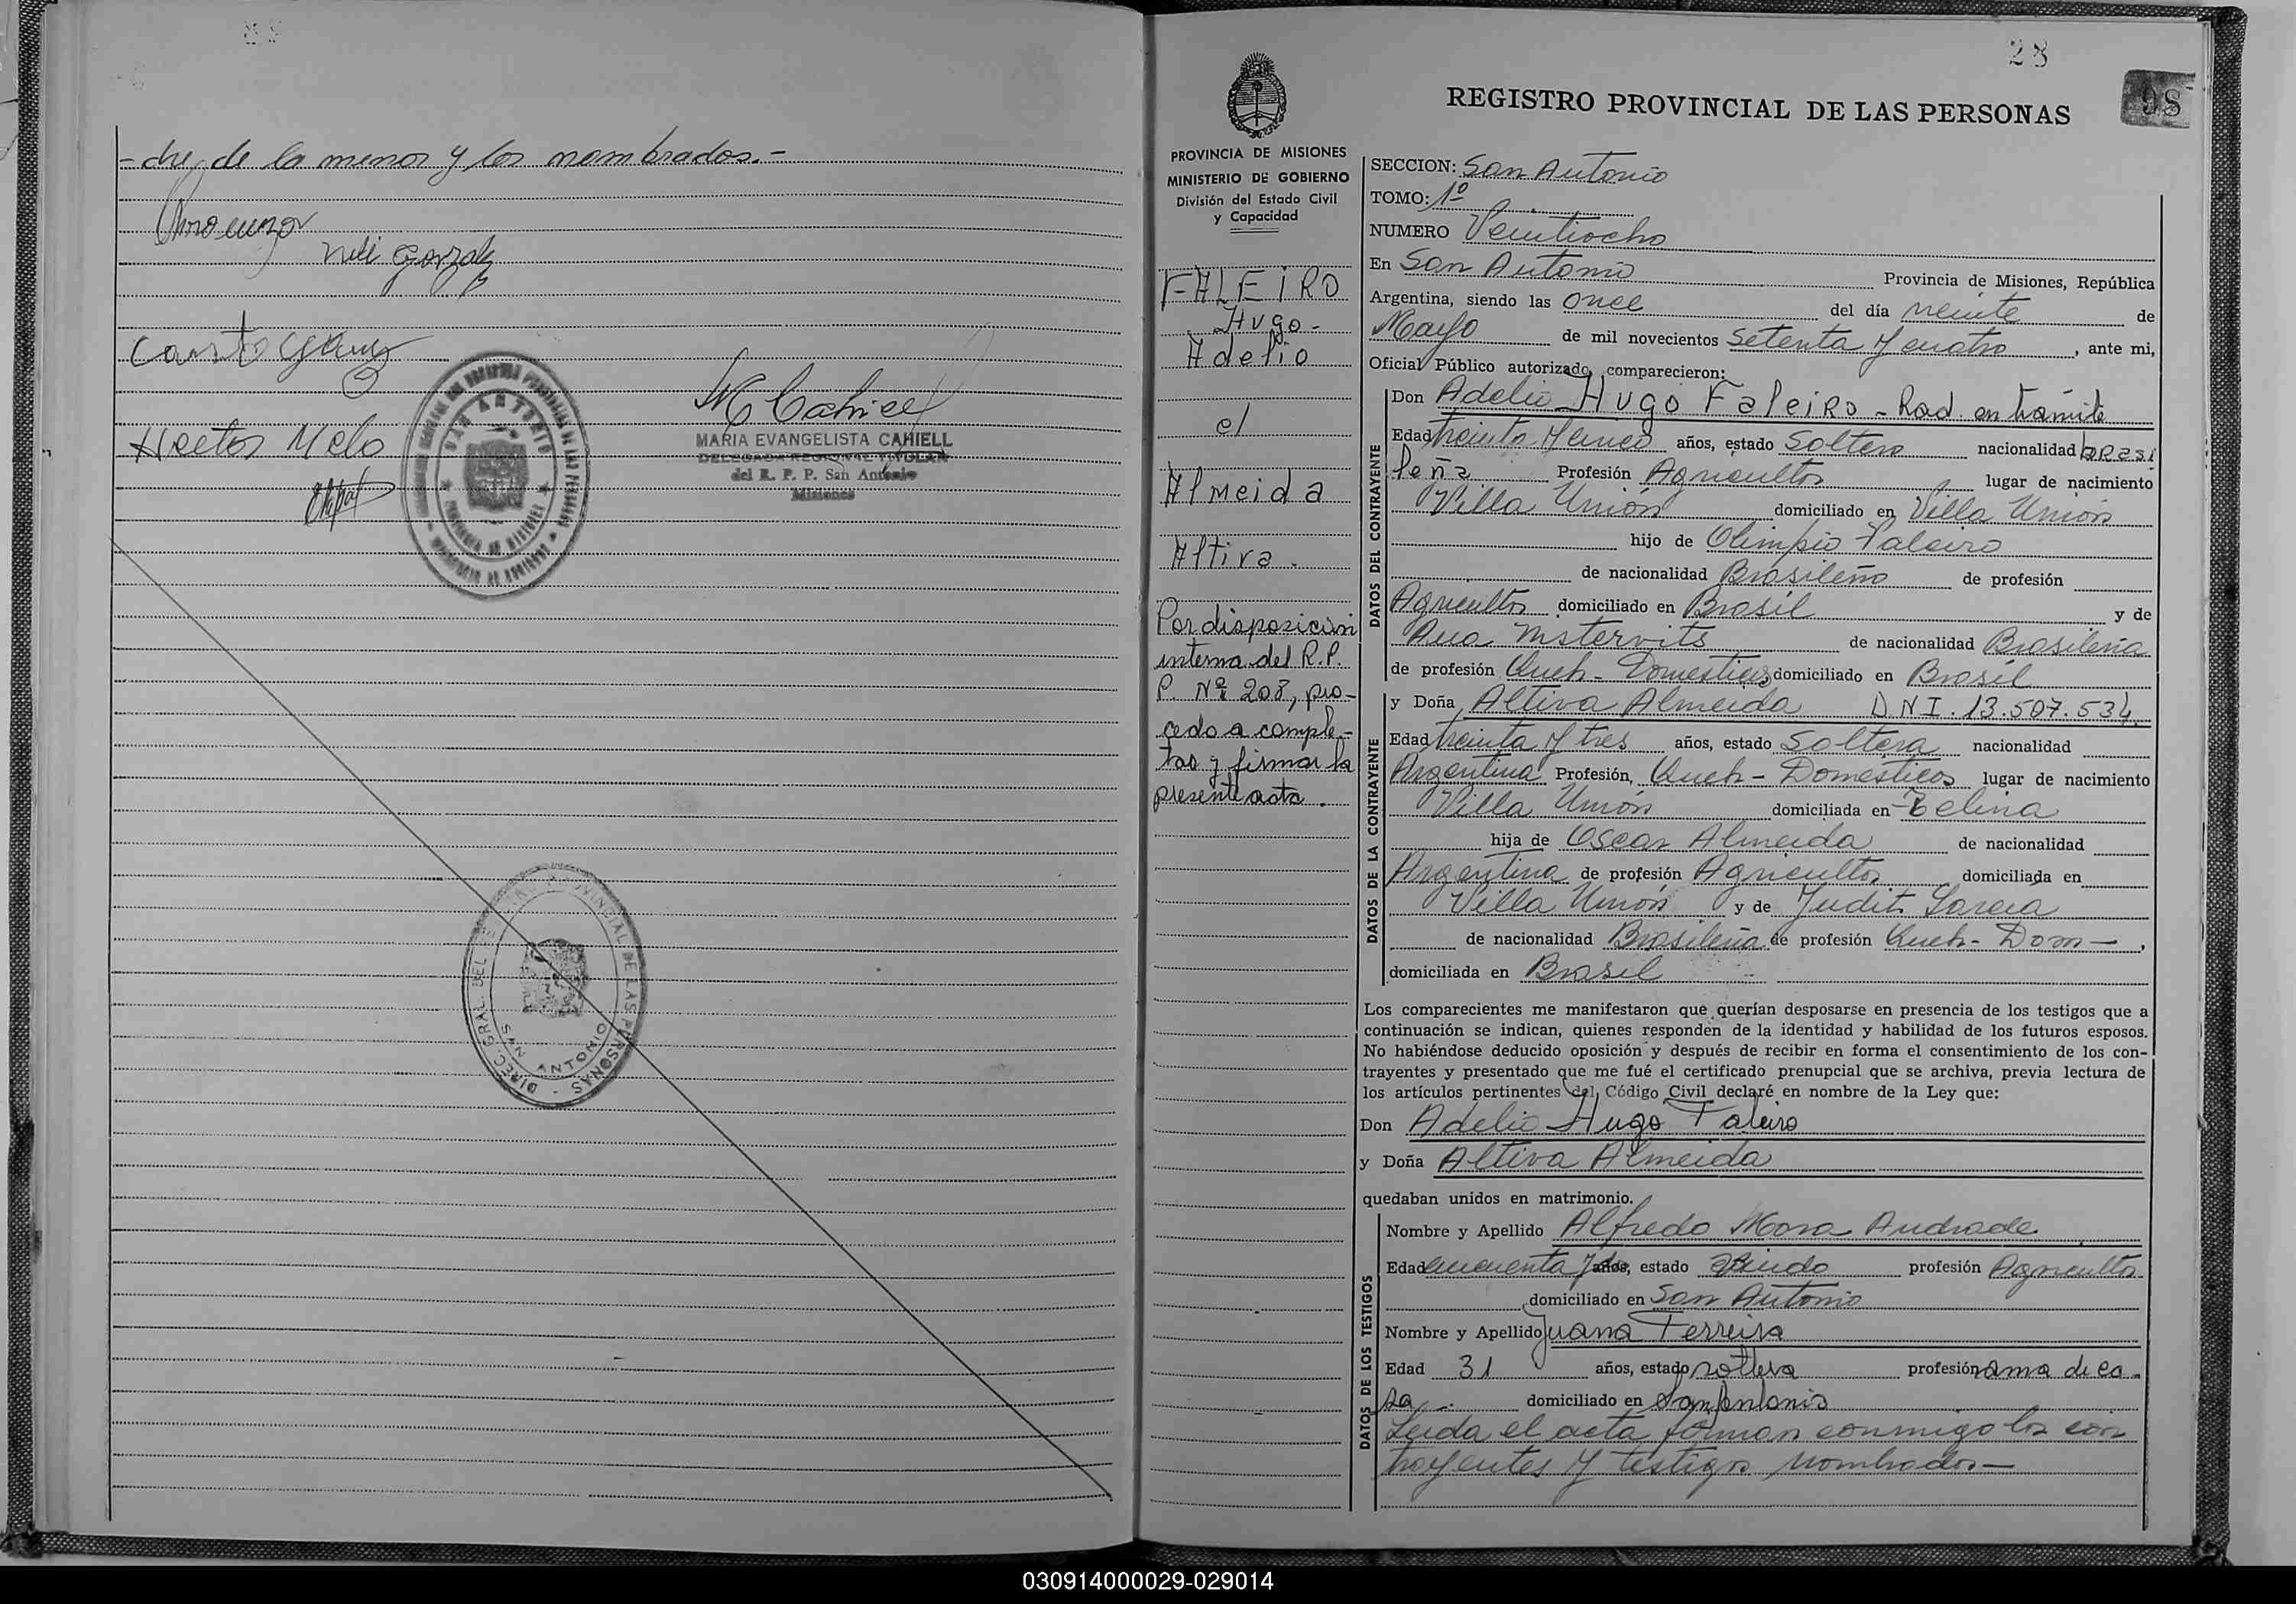 - dre, de la menor y los nombrados.-
Neli Gonzalez
Hector Melo
MARIA EVANGELISTA CAHIELL
DELEGADA REGIONAL TITULAR
del R. P. P. San Antonio
Misiones
SAN ANTONIO
SAN ANTONIO
28
98
REGISTRO PROVINCIAL DE LAS PERSONAS
PROVINCIA DE MISIONES
MINISTERIO DE GOBIERNO
División del Estado Civil
y Capacidad
FALEIRO
Hugo-
Adelio
c/
Almeida
Altiva.
Por disposición
interna del R.P.
P. Nº 208, pro-
cedo a comple-
tar y firmar la
presente acta.
SECCION: San Antonio
TOMO: 1º
NUMERO Veintiocho
En San Antonio Provincia de Misiones, República
Argentina, siendo las once del día veinte de
Mayo de mil novecientos Setenta y cuatro, ante mi,
Oficial Público autorizado, comparecieron:
DATOS DEL CONTRAYENTE
Don Adelio Hugo Faleiro - Rad. en trámite
Edad treinta y cinco años, estado Soltero nacionalidad brasi
leña Profesión Agricultor lugar de nacimiento
Villa Unión domiciliado en Villa Unión
hijo de Olimpio Faleiro
de nacionalidad Brasileño de profesión
Agricultor domiciliado en Brasil y de
Ana Mistervits de nacionalidad Brasileña
de profesión Queh- Domesticos domiciliado en Brasil
DATOS DE LA CONTRAYENTE
y Doña Altiva Almeida DNI. 13.507.534
Edad treinta y tres años, estado Soltera nacionalidad
Argentina Profesión, Queh- Domésticos lugar de nacimiento
Villa Unión domiciliada en Celina
hija de Oscar Almeida de nacionalidad
Argentina de profesión Agricultor domiciliada en
Villa Unión y de Judit Garcia
de nacionalidad Brasileña de profesión Queh- Dom-,
domiciliada en Brasil
Los comparecientes me manifestaron que querían desposarse en presencia de los testigos que a
continuación se indican, quienes responden de la identidad y habilidad de los futuros esposos.
No habiéndose deducido oposición y después de recibir en forma el consentimiento de los con-
trayentes y presentado que me fué el certificado prenupcial que se archiva, previa lectura de
los artículos pertinentes del Código Civil declaré en nombre de la Ley que:
Don Adelio Hugo Faleiro
y Doña Altiva Almeida
quedaban unidos en matrimonio.
DATOS DE LOS TESTIGOS
Nombre y Apellido Alfredo Mora Andrade
Edad cincuenta y años, estado Viudo profesión Agricultor
domiciliado en San Antonio
Nombre y Apellido Juana Ferreira
Edad 31 años, estado soltera profesión ama de ca-
sa.- domiciliado en San Antonio
Leida el acta firman conmigo los con
trayentes y testigos nombrados-
030914000029-029014